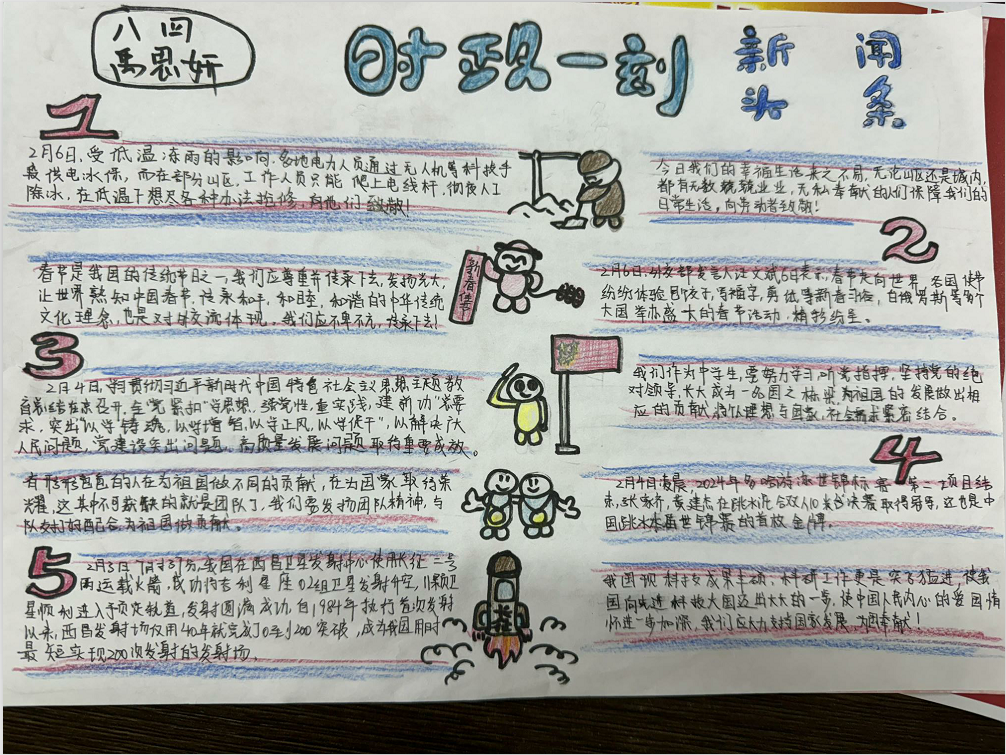 八四
禹思妍
时政一刻
新闻
头条
1
2月6日,受低温冻雨的影响,多地电力人员通过无人机等科技手
段供电水保,而在部分山区,工作人员只能爬上电线杆,彻夜人工
除冰,在低温下想尽各种办法抢修,向他们致敬!
今日我们的幸福生活来之不易,无论山区还是城内,
都有无数兢兢业业,无私奉献的人们保障我们的
日常生活,向劳动者致敬!
2
2月6日,外交部发言人汪文斌6日表示,春节走向世界,各国使节
纷纷体验包饺子,写福字,剪纸等新春习俗,白俄罗斯等多个
大国举办盛大的春节活动,精彩纷呈。
春节是我国的传统节日之一,我们应尊重并传承下去,发扬光大,
让世界熟知中国春节,传承和平,和睦,和谐的中华传统
文化理念,也是对外交流体现,我们应不卑不亢,传承下去!
新春佳节
3
2月4日,学习贯彻习近平新时代中国特色社会主义思想主题教
育总结会在京召开,全党紧扣"学思想,强党性,重实践,建新功"总要
求,突出以学铸魂,以学增智,以学正风,以学促干",以解决
人民问题,党建设突出问题,高质量发展问题取得重要成效。
我们作为中学生,要努力学习,听党指挥,坚持党的绝
对领导,长大成为一名国之栋梁,为祖国的发展做出相
应的贡献,将个人理想与国家,社会需求紧密结合。
4
2月4日凌晨,2024年多哈游泳世锦标赛第一项目结
束,张家齐,黄建杰在跳水混合双人10米台决赛取得冠军,这也是中
国跳水本届世锦赛的首枚金牌。
有形形色色的人在为祖国做不同的贡献,在为国家取得荣
耀,这其中不可或缺的就是团队了,我们需发扬团队精神,与
队友好的配合,为祖国做贡献。
5
2月3日7时37分,我国在西昌卫星发射中心使用长征二号
丙运载火箭,成功将吉利星座02组卫星发射升空,11颗卫
星顺利进入预定轨道,发射圆满成功,自1984年执行首次发射
以来,西昌发射场仅用40年就完成了0至200突破,成为我国用时
最短实现200次发射的发射场。
我国现科技成果丰硕,科研工作更是突飞猛进,使我
国向先进科技大国迈出大大的一步,使中国人民内心的爱国情
怀进一步加深,我们应大力支持国家发展,为国奉献!